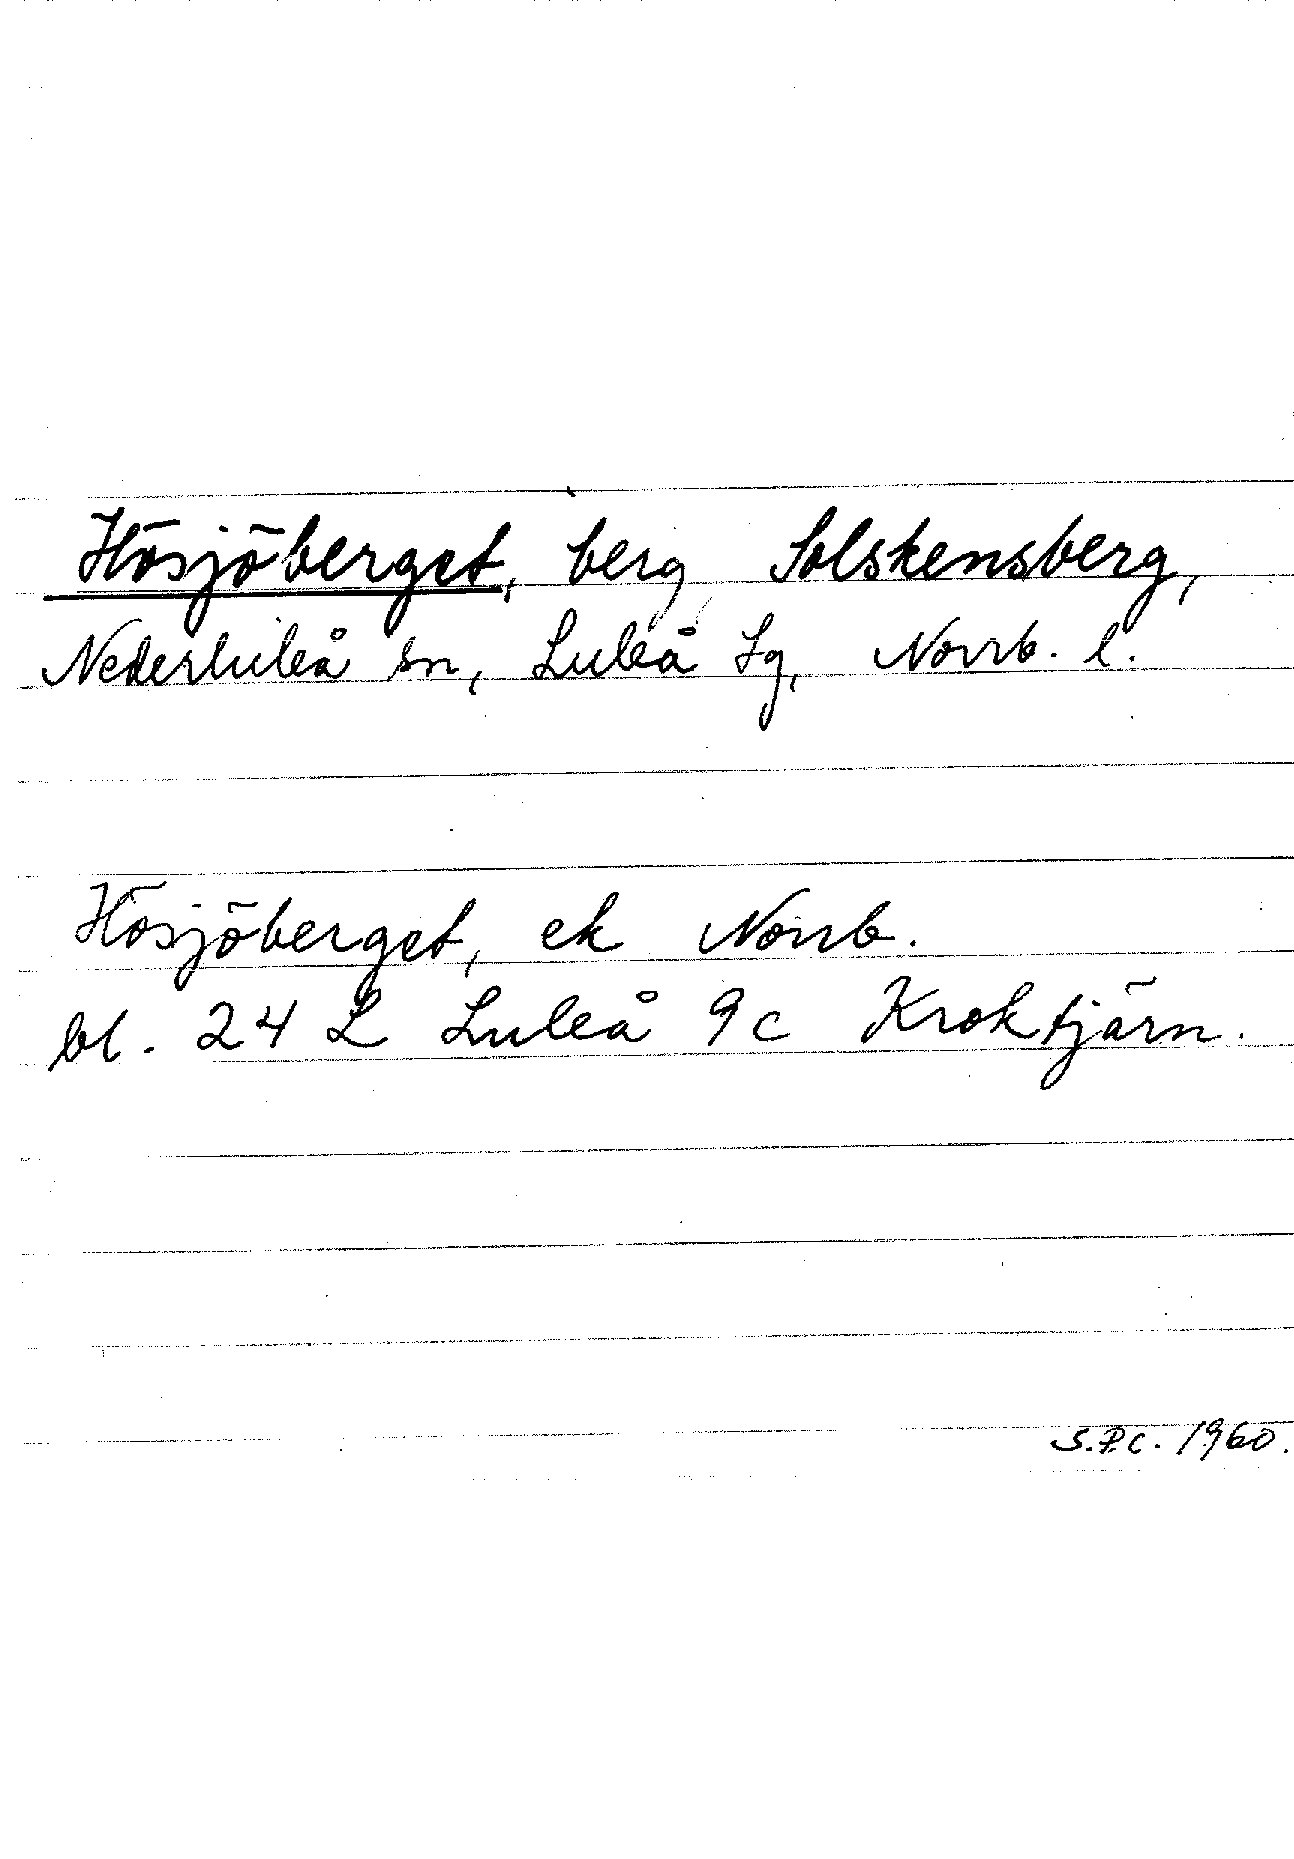 Hösjöberget, berg Solskensberg,
Nederluleå sn, Luleå tg, Norrb. l.
Hösjöberget, ek Norrb.
bl. 24 L Luleå 9c Kroktjärn.
S.P.C. 1960.